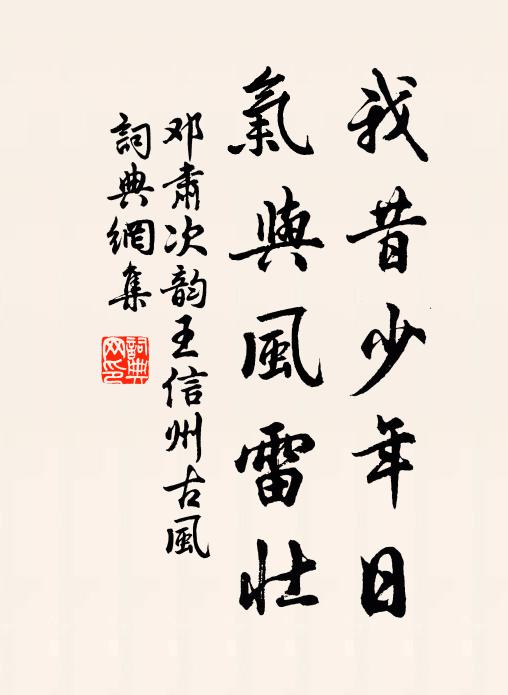 我昔少年日
氣與風雷壯
邓肅次韵王信州古風
詞典網集
詞典網印